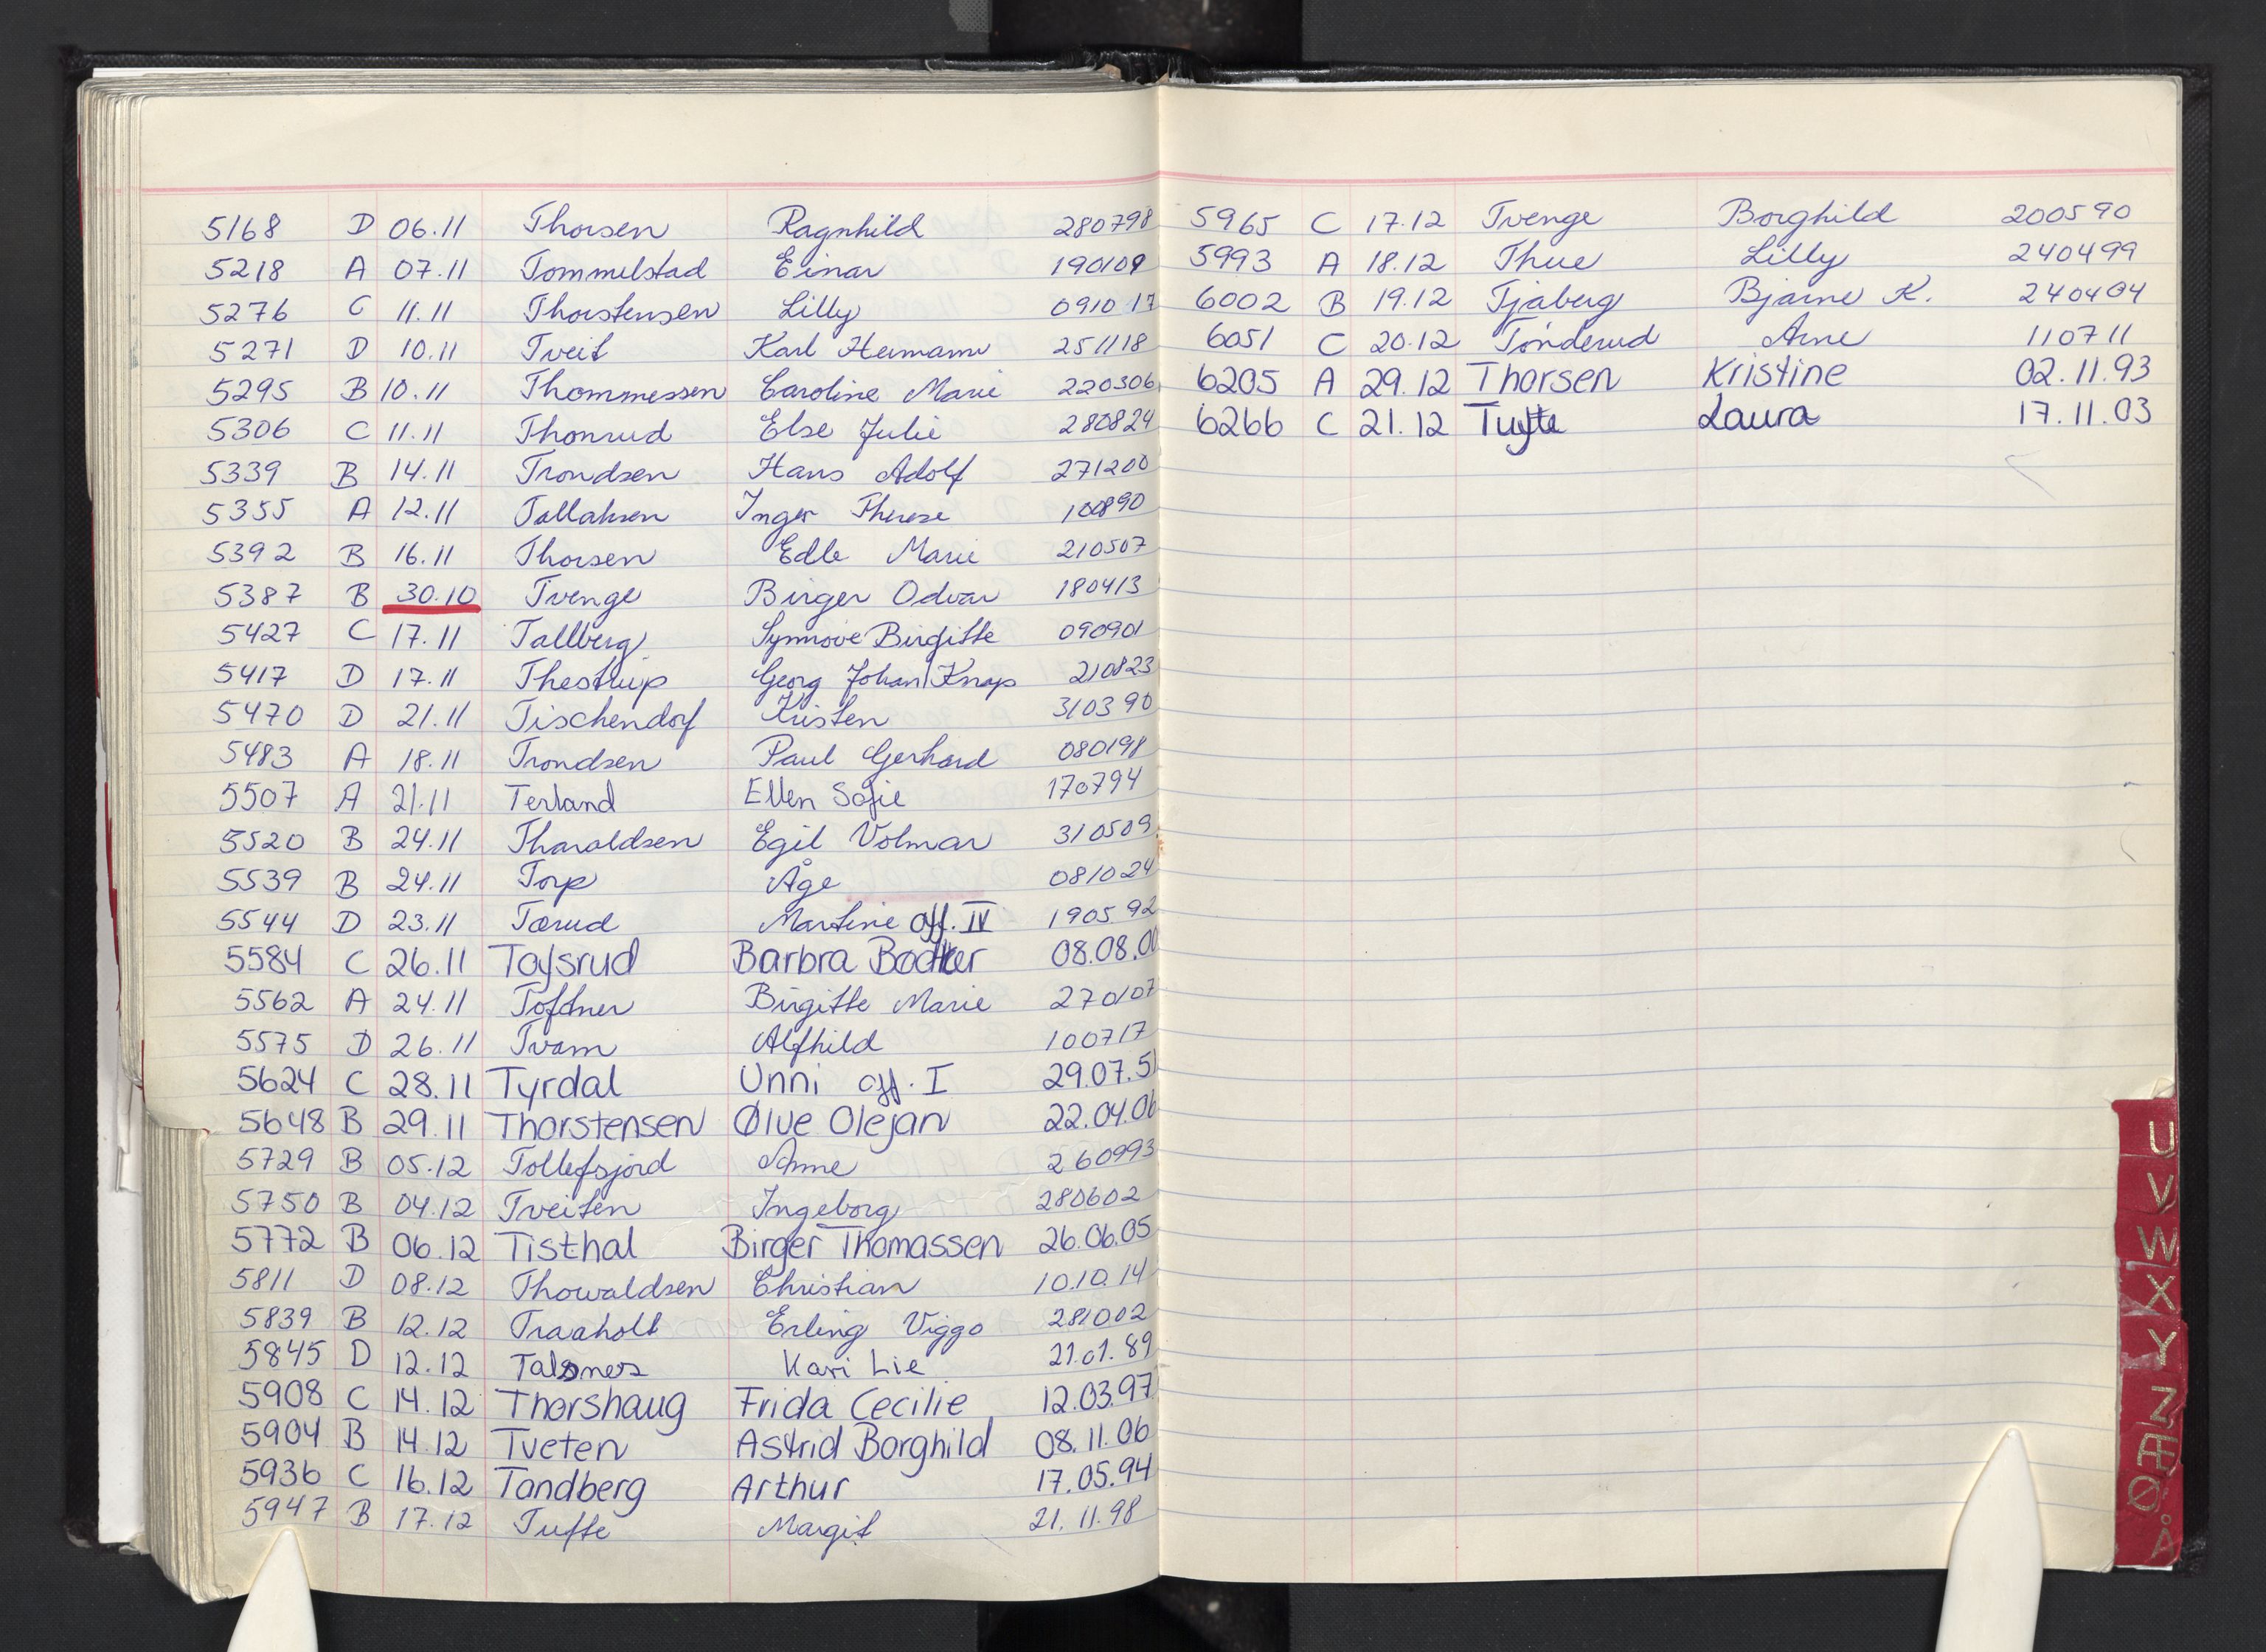 5168 D 06.11 Thorsen Ragnhild 280798
5218 A 07.11 Tommelstad Einar 190109
5276 C 11.11 Thorstensen Lilly 091017
5271 D 10.11 Tveit Karl Hermann 251118
5295 B 10.11 Thommessen Caroline Marie 220306
5306 C 11.11 Thonrud Else Julie 280824
5339 B 14.11 Trondsen Hans Adolf 271200
5355 A 12.11 Tallaksen Inger Therese 100890
5392 B 16.11 Thorsen Edle Marie 210507
5387 B 30.10 Tvenge Birger Odvar 180413
5427 C 17.11 Tallberg Synnøve Birgitte 090901
5417 D 17.11 Thestrup Georg Johan Knap 210823
5470 D 21.11 Tischendorf Kristen 310390
5483 A 18.11 Trondsen Paul Gerhard 080198
5507 A 21.11 Terland Ellen Sofie 170794
5520 B 24.11 Tharaldsen Egil Volmar 310509
5539 B 24.11 Torp Åge 081024
5544 D 23.11 Tærud Martine off. IV 190592
5584 C 26.11 Tofsrud Barbra Bødtker 08.08.00
5562 A 24.11 Toftner Birgitte Marie 270107
5575 D 26.11 Tvam Alfhild 100717
5624 C 28.11 Tyrdal Unni off. I 29.07.51
5648 B 29.11 Thorstensen Ølve Olejan 22.04.06
5729 B 05.12 Tollefsjord Anne 260993
5750 B 04.12 Tveiten Ingeborg 280602
5772 B 06.12 Tisthal Birger Thomassen 26.06.05
5811 D 08.12 Thowaldsen Christian 10.10.14
5839 B 12.12 Traaholt Erling Viggo 281002
5845 D 12.12 Talsnes Kari Lie 21.01.89
5908 C 14.12 Thorshaug Frida Cecilie 12.03.97
5904 B 14.12 Tveten Astrid Borghild 08.11.06
5936 C 16.12 Tandberg Arthur 17.05.94
5947 B 17.12 Tufte Margit 21.11.98
5965 C 17.12 Tvenge Borghild 200590
5993 A 18.12 Thue Lilly 240499
6002 B 19.12 Tjåberg Bjarne K. 240404
6051 C 20.12 Tønderud Arne 110711
6205 A 29.12 Thorsen Kristine 02.11.93
6266 C 21.12 Tufte Laura 17.11.03
U
V
W
X
Y
Z
Æ
Ø
Å